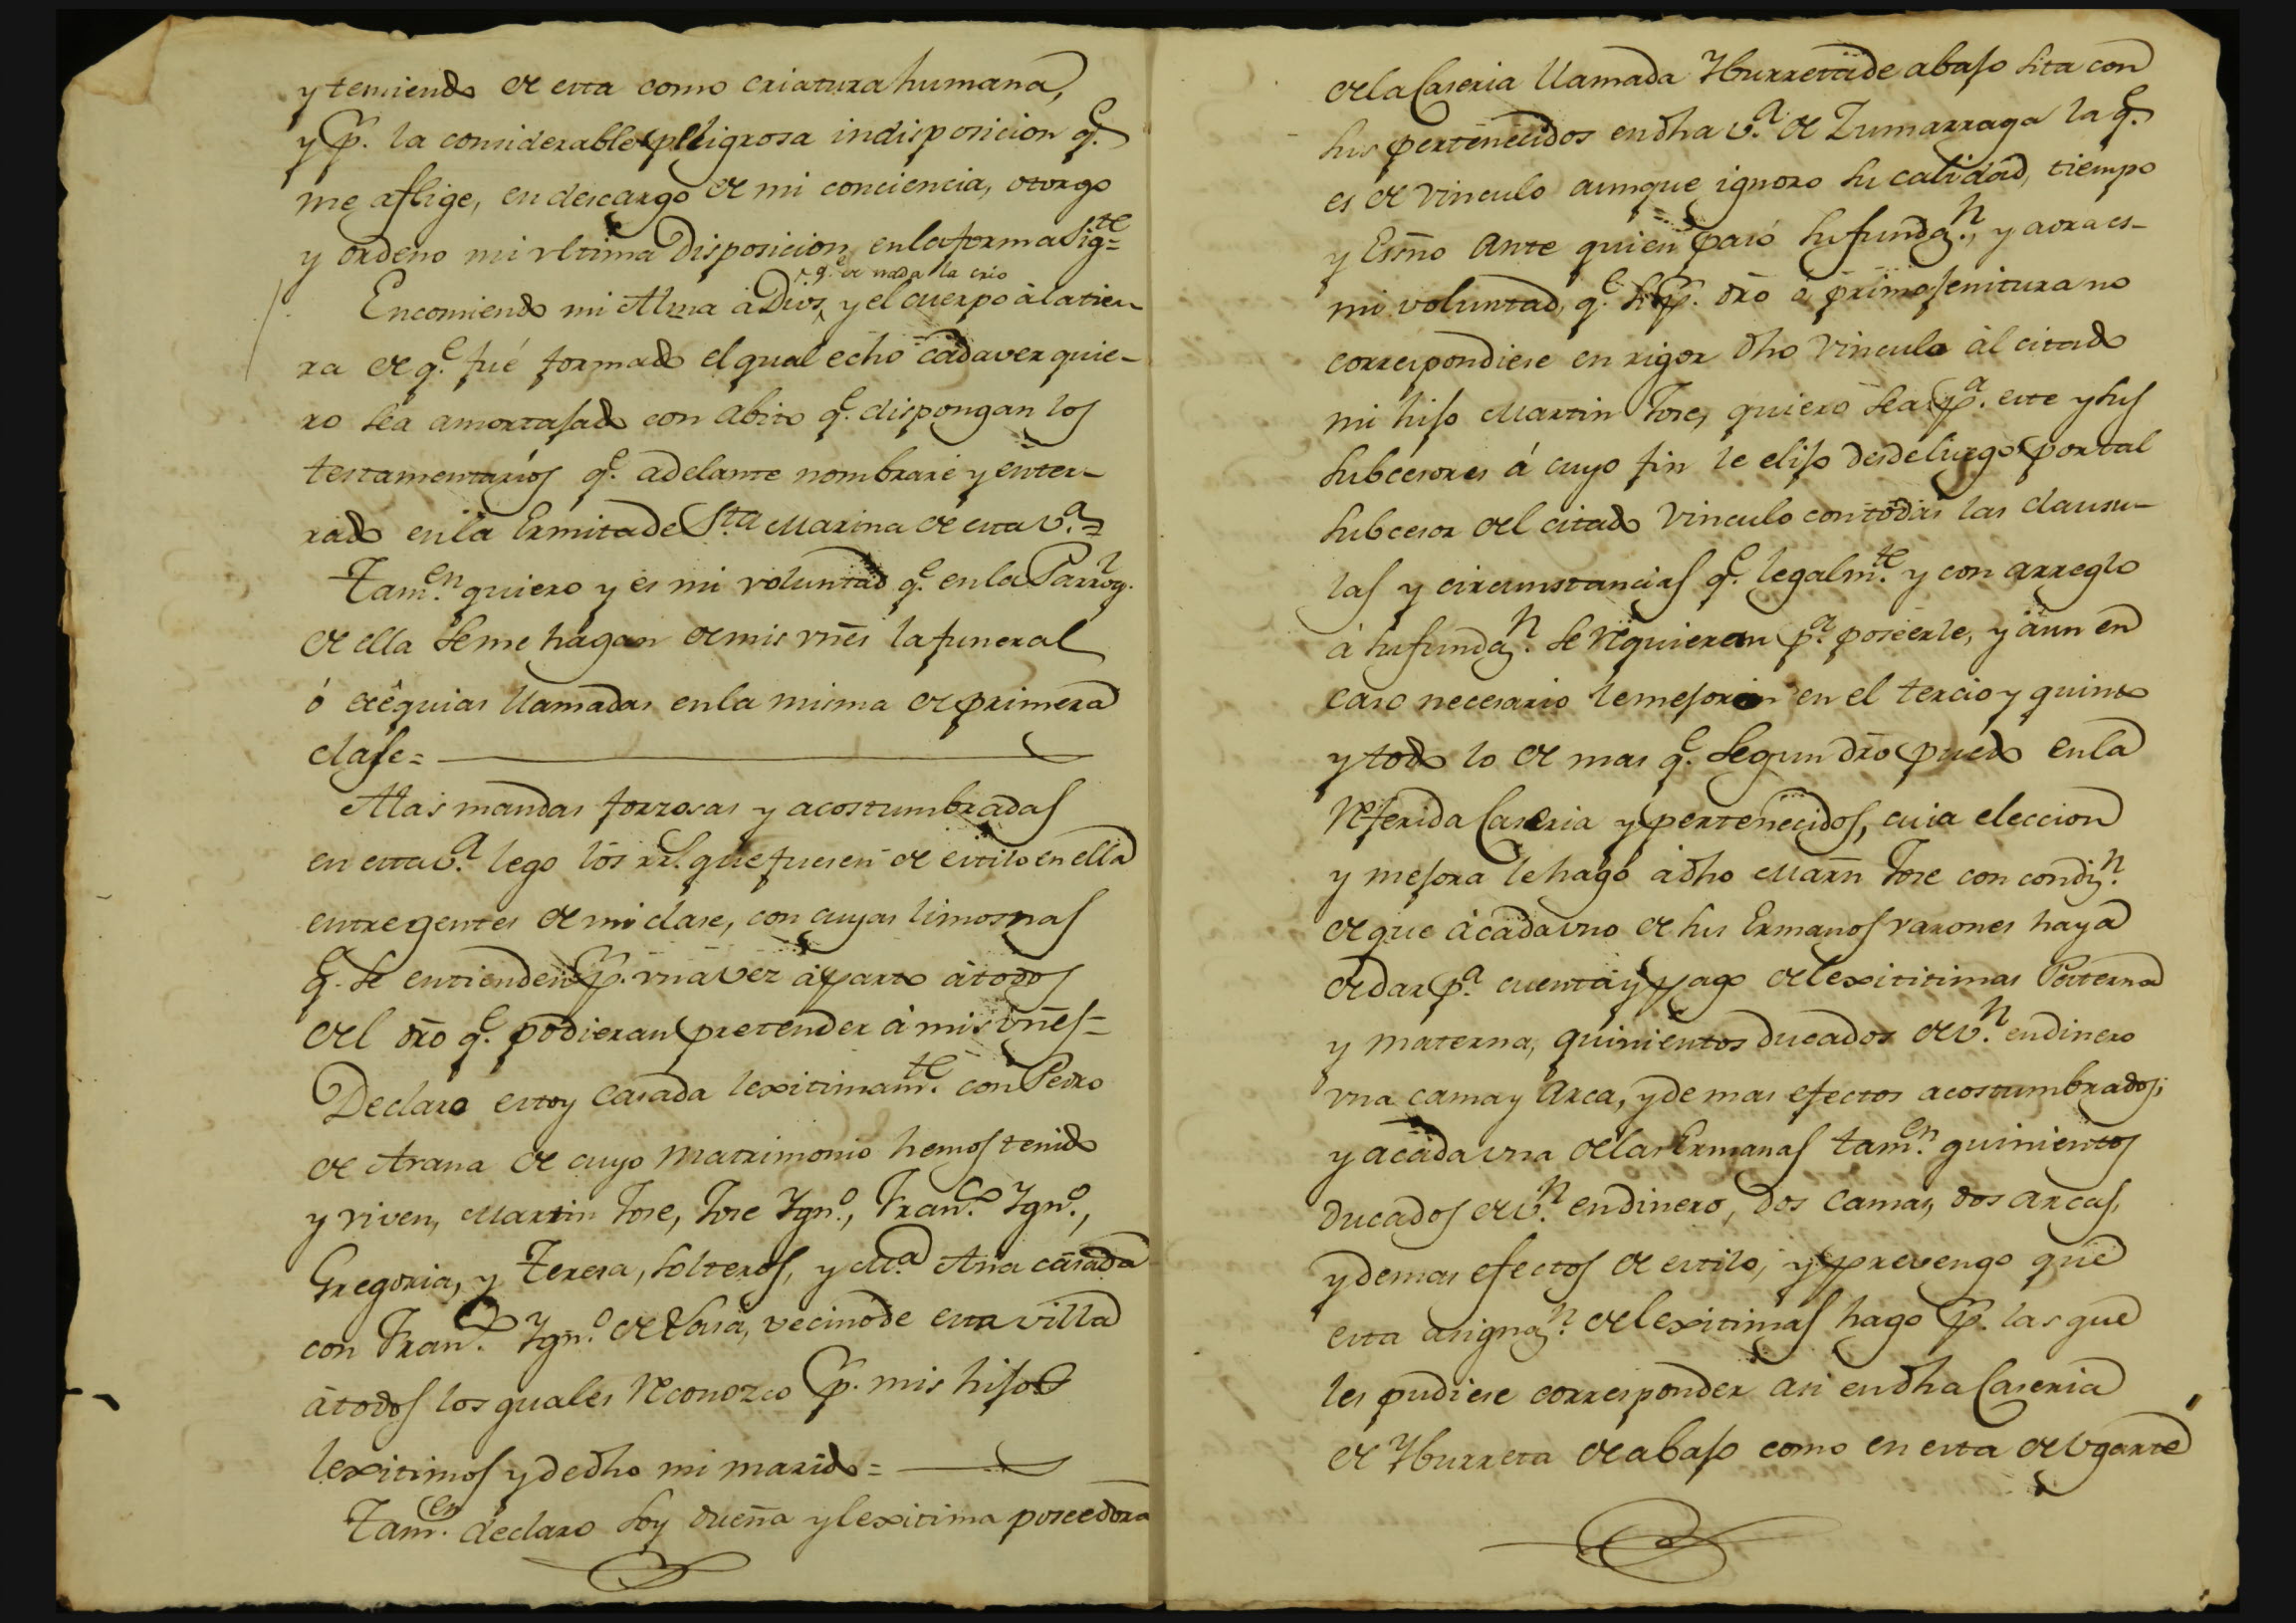 y temiendo de esta como criatura humana,
y p.r la considerable y peligrosa indisposicion q.e
me aflige, en descargo de mi conciencia, otorgo
y ordeno mi vltima disposicion en la forma sig.te=
q.e de nada la crio
Encomiendo mi Alma à Dios, y el cuerpo à la tier-
ra de q.e fué formado el qual echo cadaver quie-
ro sea amortajado con abito q.e dispongan los
testamentarios q.e adelante nombraré y enter-
rado en la Ermita de S.ta Marina de esta v.a=
Tam.en quiero y es mi voluntad q.e en la Parroq.
de ella se me hagan de mis vñes la funeral
ó exêquias llamadas en la misma de primera
clase=
A las mandas forzosas y acostumbradas
en esta v.a lego los rr.s que fuesen de estilo en ella
entre gentes de mi clase, con cuyas limosnas
q.e se entienden p.r vna vez aparto à todos
del dro q.e podieran pretender à mis vñes=
Declaro estoy casada lexitimam.te con Pedro
de Arana de cuyo Matrimonio hemos tenido
y viven, Martin Jose, Jose Ygn.o, Fran.co Ygn.o,
Gregoria, y Teresa, solteros, y M.a Ana casada
con Fran.co Ygn.o de vecino de esta villa
à todos los quales reconozco p.r mis hijos
lexitimos y de dho mi marido=
Tam.en declaro soy dueña y lexitima poseedora
de la Caseria llamada Yburreta de abajo sita con
sus pertenecidos en dha v.a de Zumarraga la q.e
es de vinculo aunque ignoro su calidad, tiempo
y Essno ante quien pasó su fundaz.n, y aora es-
mi voluntad, q.e si p.r dro de primojenitura no
correspondiese en rigor dho vinculo àl citado
mi hijo Martin Jose, quiero sea p.a este y sus
subcesores á cuyo fin le elijo desde luego por tal
subcesor del citado vinculo con todas las clausu-
las y circunstancias q.e legalm.te y con arreglo
à su fundaz.n se requieran p.a poseerle, y aun en
caso necesario le mejoro en el tercio y quinto
y todo lo de mas q.e segun dro puedo en la
referida Caseria y pertenecidos, cuia eleccion
y mejora le hago à dho Marñ Jose con condiz.n
de que à cada vno de sus Ermanos varones haya
de dar p.a cuenta y pago de lexititimas Paterna
y materna, quinientos ducados de v.n en dinero
vna cama y Arca, y de mas efectos acostumbrados;
y à cada vna de las Ermanas tam.en quinientos
ducados de v.n en dinero, dos camas, dos arcas,
y demas efectos de estilo; y prevengo que
esta asignaz.n de lexitimas hago p.r las que
les pudiese corresponder asi en dha Caseria
de Yburreta de abajo como en esta de Vgarte